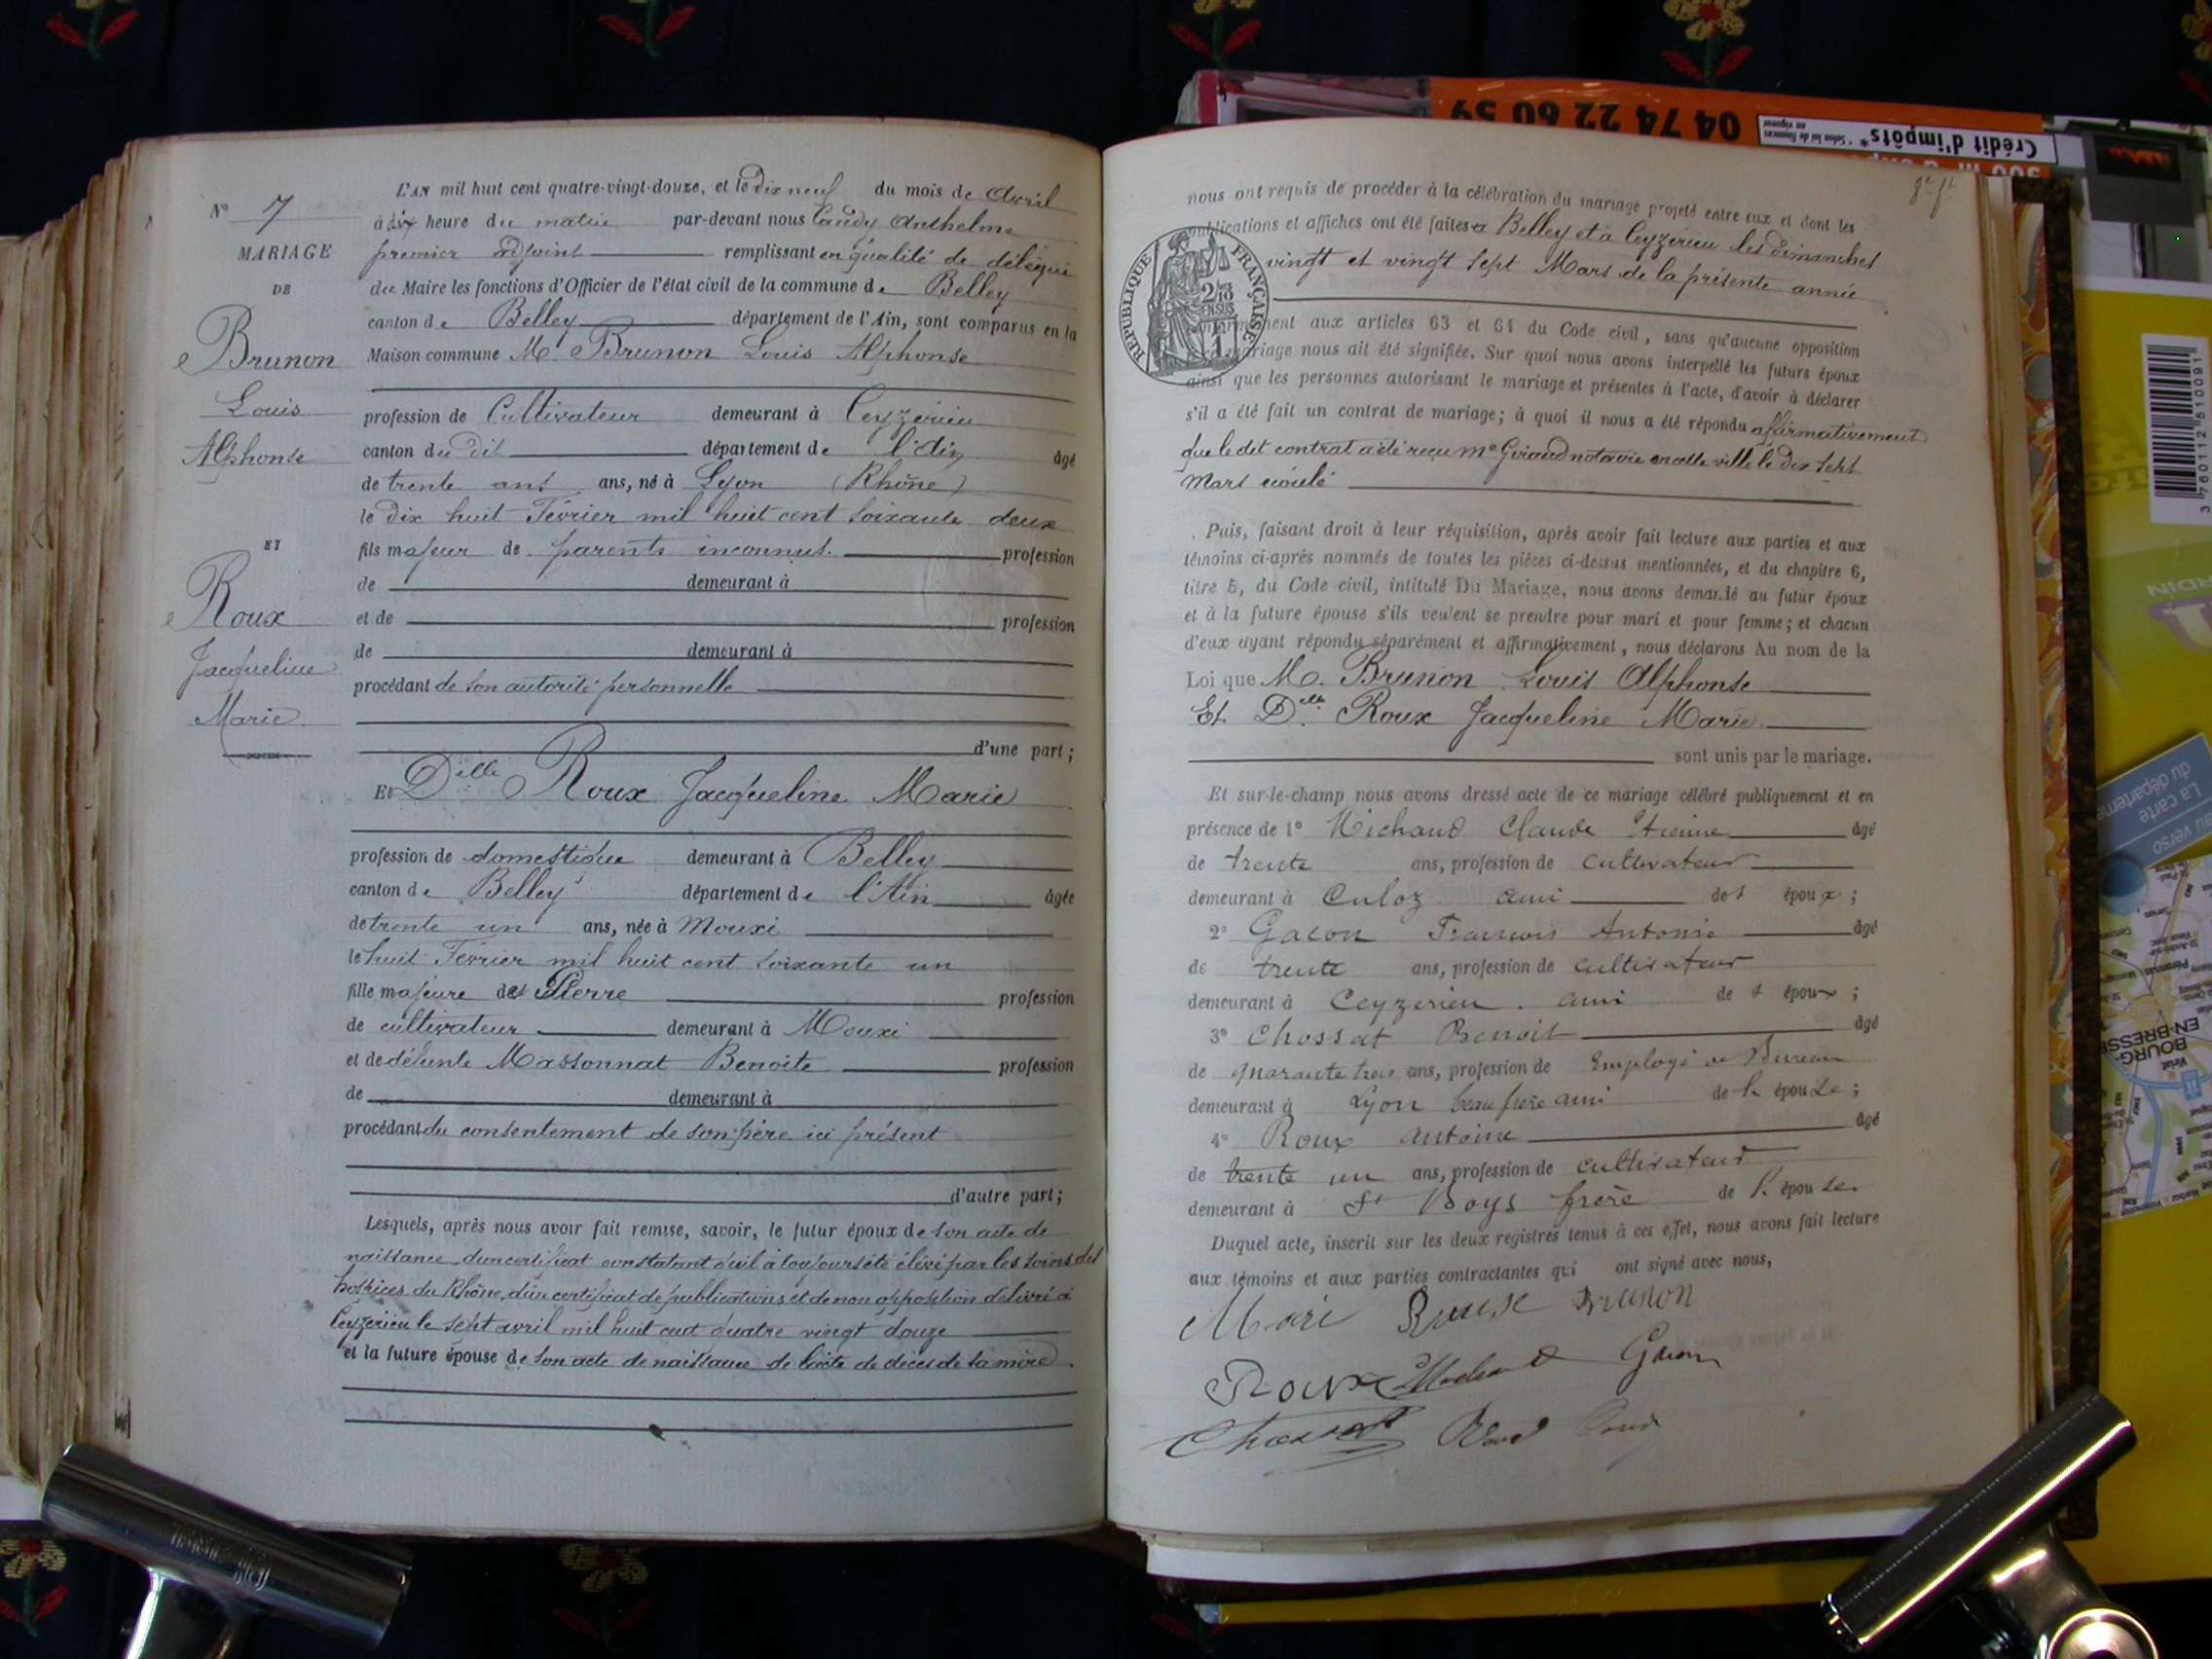 N° 7
MARIAGE
DE
Brunon
Louis
Alphonse
ET
Roux
Jacqueline
Marie
L'AN mil huit cent quatre-vingt-douze, et le Dix neuf du mois de Avril
à dix heure du matin par-devant nous Candy Anthelme
premier adjoint remplissant en qualité de délégué
du Maire les fonctions d'Officier de l'état civil de la commune de Belley
canton de Belley département de l'Ain, sont comparus en la
Maison commune M. Brunon Louis Alphonse
profession de Cultivateur demeurant à Ceyzérieu
canton du dit département de l'Ain âgé
de trente ans ans, né à Lyon (Rhône)
le dix huit Février mil huit cent soixante deux
fils majeur de parents inconnus. profession
de demeurant à
et de profession
de demeurant à
procédant de son autorité personnelle
d'une part;
Et Delle Roux Jacqueline Marie
profession de domestique demeurant à Belley
canton de Belley département de l'Ain âgée
de trente un ans, née à Mouxi
le huit Février mil huit cent soixante un
fille majeure de Pierre profession
de cultivateur demeurant à Mouxi
et de défunte Massonnat Benoite profession
de demeurant à
procédant du consentement de son père ici présent
d'autre part;
Lesquels, après nous avoir fait remise, savoir, le futur époux de son acte de
naissance d'un certificat constatant qu'il a toujours été élevé par les soins des
hospices du Rhône, d'un certificat de publications et de non opposition délivré à
Ceyzérieu le sept avril mil huit cent quatre vingt douze
et la future épouse de son acte de naissance de l'acte de décès de sa mère.
nous ont requis de procéder à la célébration du mariage projeté entre eux et dont les
publications et affiches ont été faites à Belley et à Ceyzérieu les dimanches
vingt et vingt sept Mars de la présente année
RÉPUBLIQUE FRANÇAISE
2/10 EN SUS
conformément aux articles 63 et 64 du Code civil, sans qu'aucune opposition
mariage nous ait été signifiée. Sur quoi nous avons interpellé les futurs époux
ainsi que les personnes autorisant le mariage et présentes à l'acte, d'avoir à déclarer
s'il a été fait un contrat de mariage; à quoi il nous a été répondu affirmativement
que le dit contrat a été reçu Me Giraud notaire en cette ville le dix sept
Mars écoulé
Puis, faisant droit à leur réquisition, après avoir fait lecture aux parties et aux
témoins ci-après nommés de toutes les pièces ci-dessus mentionnées, et du chapitre 6,
titre 5, du Code civil, intitulé Du Mariage, nous avons demandé au futur époux
et à la future épouse s'ils veulent se prendre pour mari et pour femme; et chacun
d'eux ayant répondu séparément et affirmativement, nous déclarons Au nom de la
Loi que M. Brunon Louis Alphonse
Et Delle Roux Jacqueline Marie.
sont unis par le mariage.
Et sur-le-champ nous avons dressé acte de ce mariage célébré publiquement et en
présence de 1° Michaud Claude Etienne âgé
de trente ans, profession de cultivateur
demeurant à Culoz ami des époux;
2° Gacon François Antoine âgé
de trente ans, profession de cultivateur
demeurant à Ceyzerieu. ami des époux;
3° Chossat Benoit âgé
de quarante trois ans, profession de Employé de Bureau
demeurant à Lyon beau frère ami de l'épouse;
4° Roux Antoine âgé
de trente un ans, profession de cultivateur
demeurant à St Boys frère de l'épouse.
Duquel acte, inscrit sur les deux registres tenus à cet effet, nous avons fait lecture
aux témoins et aux parties contractantes qui ont signé avec nous,
Mari Roux Brunon
Roux Michaud Gacon
Chossat
04 74 22 60 59
Crédit d'impôts*
3 760112 510091
La carte
au verso
BOURG-
EN-BRESSE